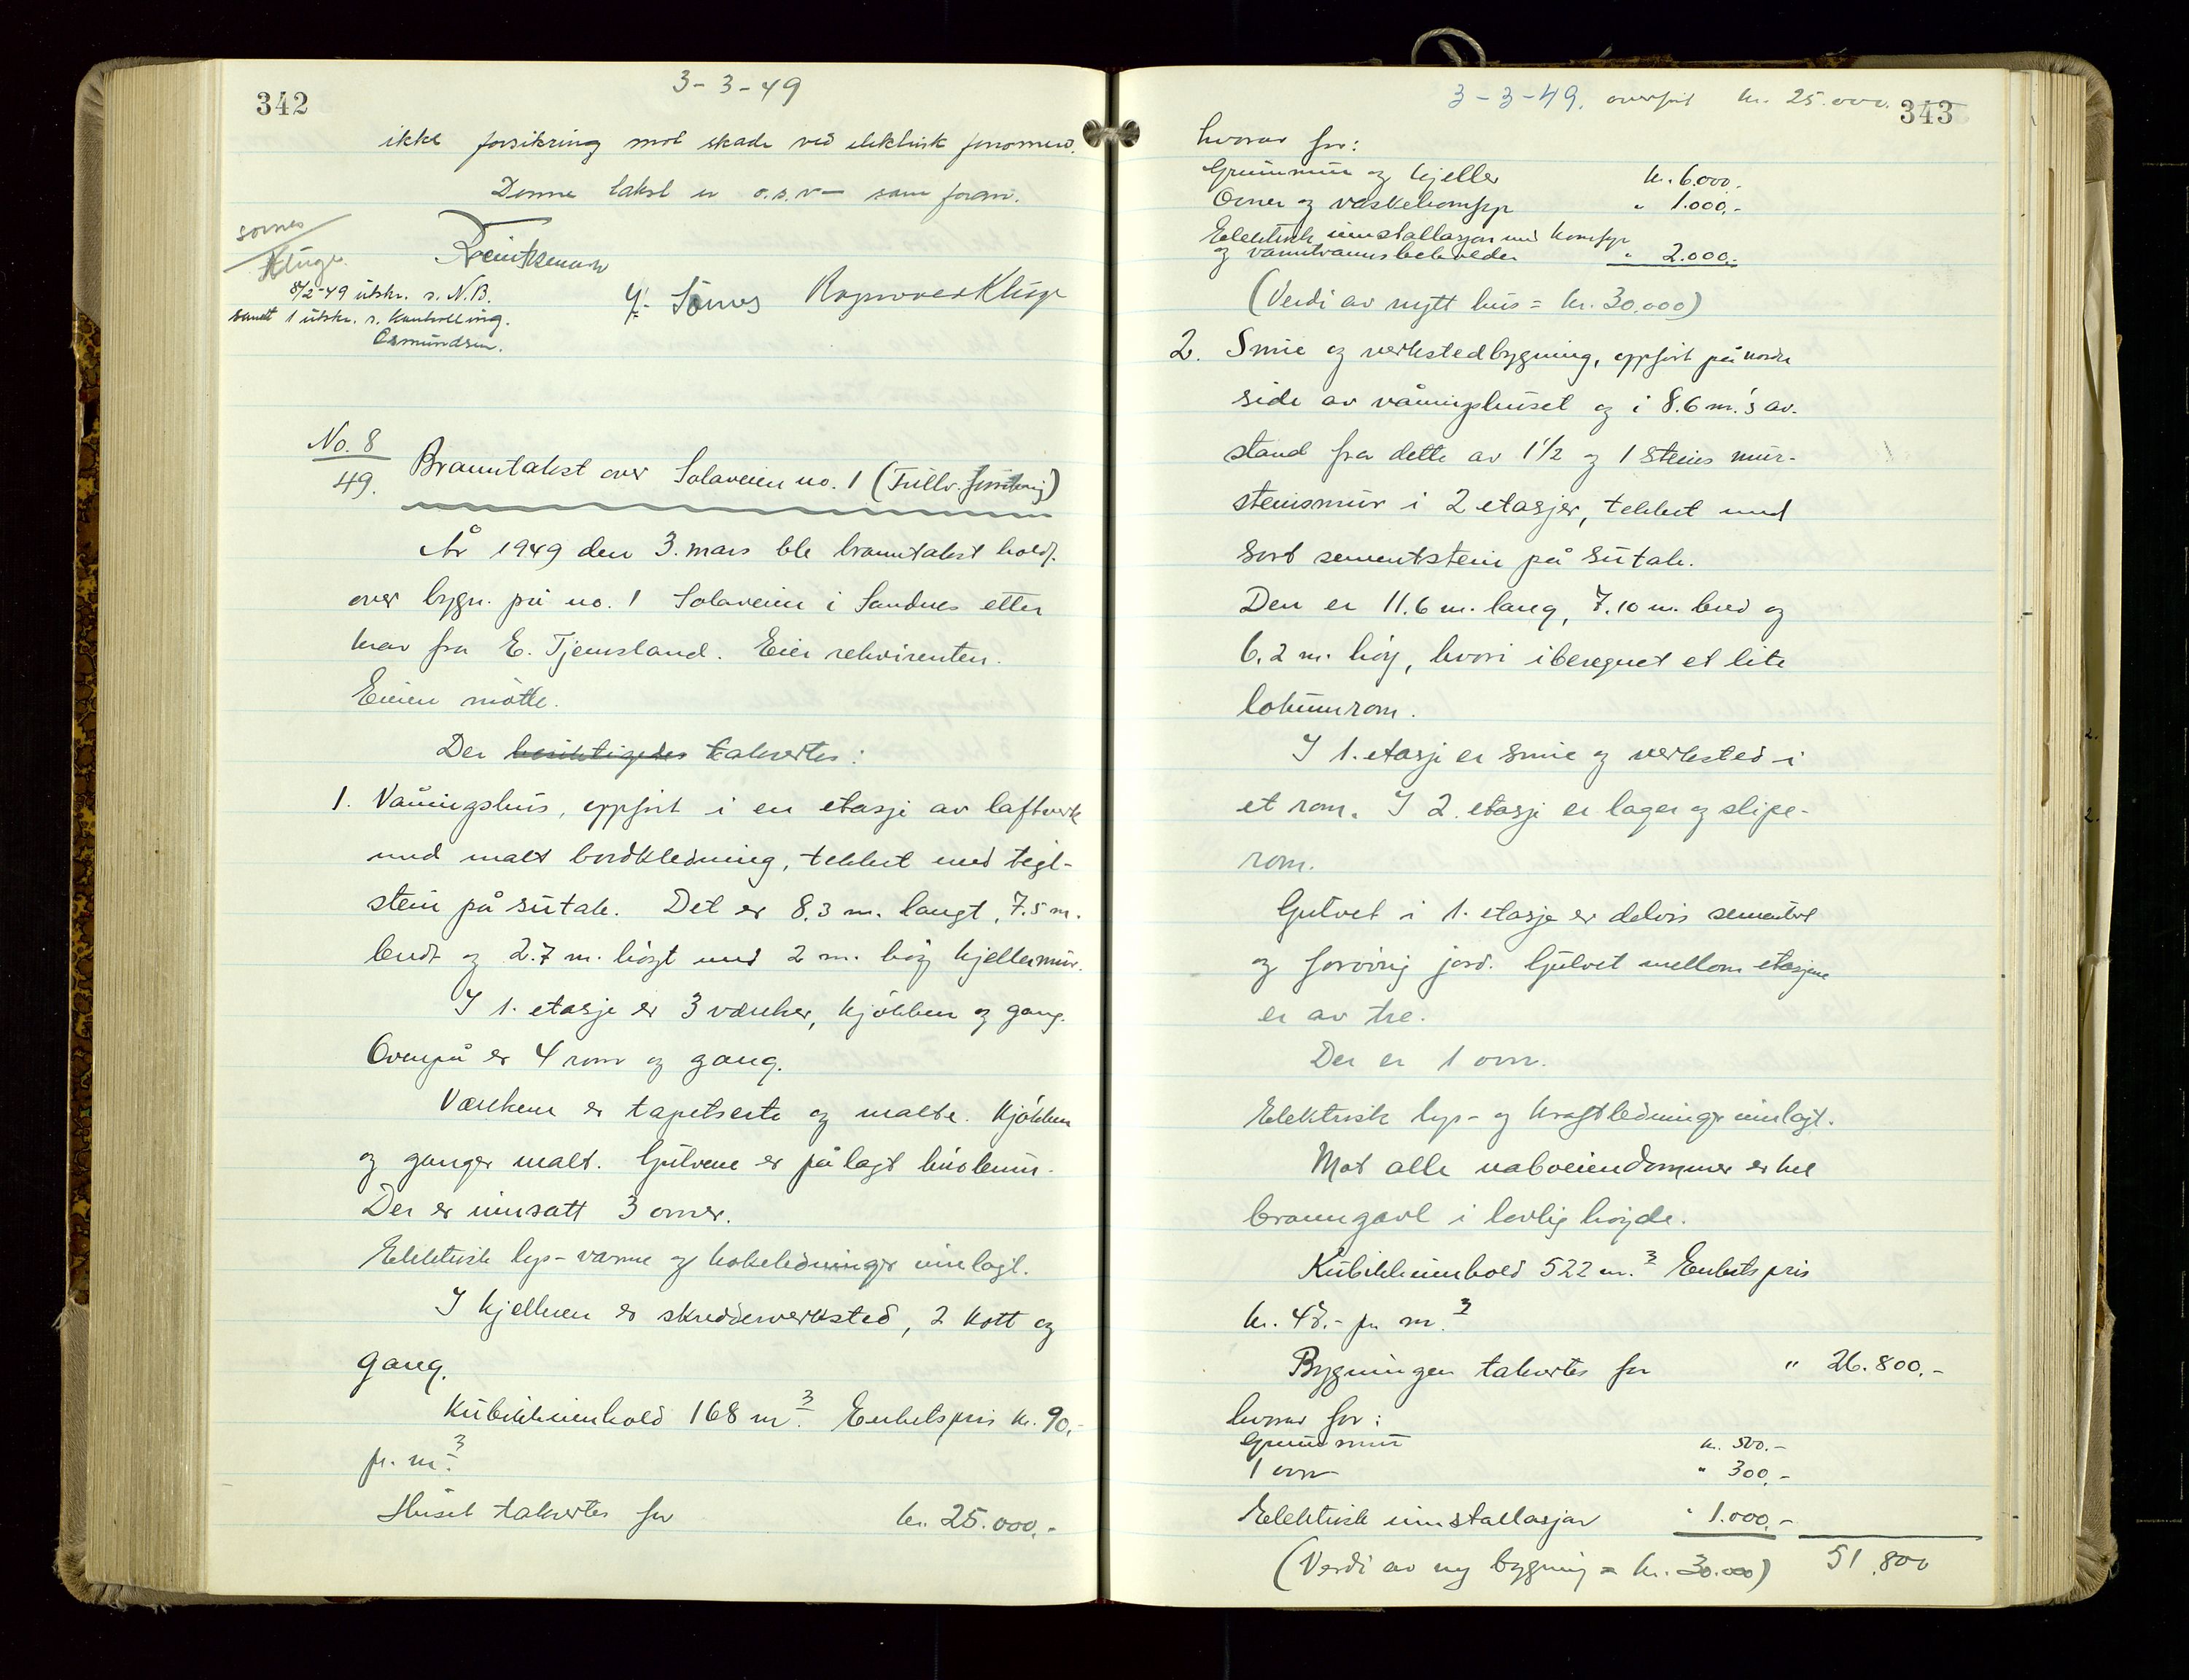 342
3-3-49
ikke forsikring mot skade ved elektrisk fenomen.
Denne takst er o.s.v— som foran.
Sømes
Kluge
8/2-49 utskr. s. N.B.
samt 1 utskr. s. Kontrolling.
Osmundsen.
No. 8
49.
Branntakst over Solaveien no. 1 (Fullv. forsikring)
År 1949 den 3. mars ble branntakst holdt
over bygn. på no. 1 Solaveien i Sandnes etter
krav fra E. Tjemsland. Eier rekvirenten.
Eieren møtte.
Der besiktigedes takertes:
1. Våningshus, oppført i en etasje av laftverk
med malt bordkledning, tekket med tegl-
stein på sutak. Det er 8.3 m. langt, 7.5 m.
bredt og 2.7 m. høgt med 2 m. høg kjellermur.
I 1. etasje er 3 værelser, kjøkken og gang.
Ovenpå er 4 rom og gang.
Værelsene er tapetserte og malte. Kjøkken
og ganger malt. Gulvene er pålagt linoleum.
Der er innsatt 3 ovner.
Elektrisk lys- varme og kokeledninger innlagt.
I kjelleren er skredderverksted, 2 kott og
gang.
Kubikkinnhold 168 m³. Enhetspris kr. 90,-
pr. m³.
Huset takertes for kr. 25.000,-
3-3-49. overført kr. 25.000. 343
hvorav for:
Grunnmur og kjeller kr. 6.000,-
Ovner og vaskekomfyr " 1.000,-
Elektrisk innstallasjon med komfyr
og varmtvannsbeholder " 2.000,-
(Verdi av nytt hus = kr. 30.000)
2. Smie og verkstedbygning, oppført på nordre
side av våningshuset og i 8.6 m.'s av-
stand fra dette av 1½ og 1 steins mur-
steinsmur i 2 etasjer, tekket med
sort sementstein på sutak.
Den er 11.6 m. lang, 7.10 m. bred og
6.2 m. høy, hvori iberegnet et lite
lokumrom.
I 1. etasje er smie og verksted i
et rom. I 2. etasje er lager og slipe-
rom.
Gulvet i 1. etasje er delvis sementert
og forøvrig jord. Gulvet mellom etasjene
er av tre.
Der er 1 ovn.
Elektrisk lys- og kraftledninger innlagt.
Mot alle naboeiendommer er hel
branngavl i lovlig høyde.
Kubikkinnhold 522 m.³ Enhetspris
kr. 48.- pr. m.³
Bygningen takertes for " 26.800,-
hvorav for:
Grunnmur kr. 500.-
1 ovn " 300,-
Elektrisk innstallasjon " 1.000,-
(Verdi av ny bygning = kr. 30.000) 51.800